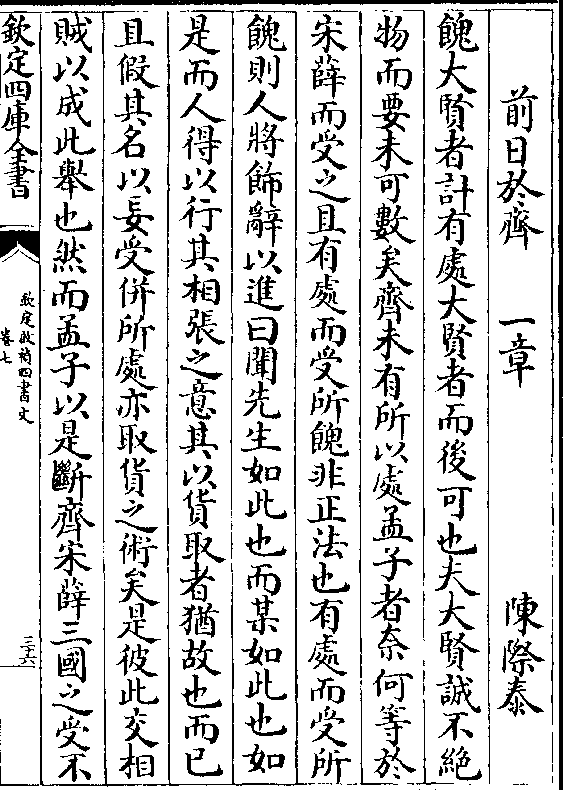 前日於齊　一章　陳際泰
餽大賢者計有處大賢者而後可也夫大賢誠不絶
物而要未可數矣齊未有所以處孟子者奈何等於
宋薛而受之且有處而受所餽非正法也有處而受所
餽則人將飾辭以進曰聞先生如此也而某如此也如
是而人得以行其相張之意其以貨取者猶故也而已
且假其名以妄受併所處亦取貨之術矣是彼此交相
賊以成此舉也然而孟子以是斷齊宋薛三國之受不
欽定四庫全書
欽定啟禎四書文
卷七
三六